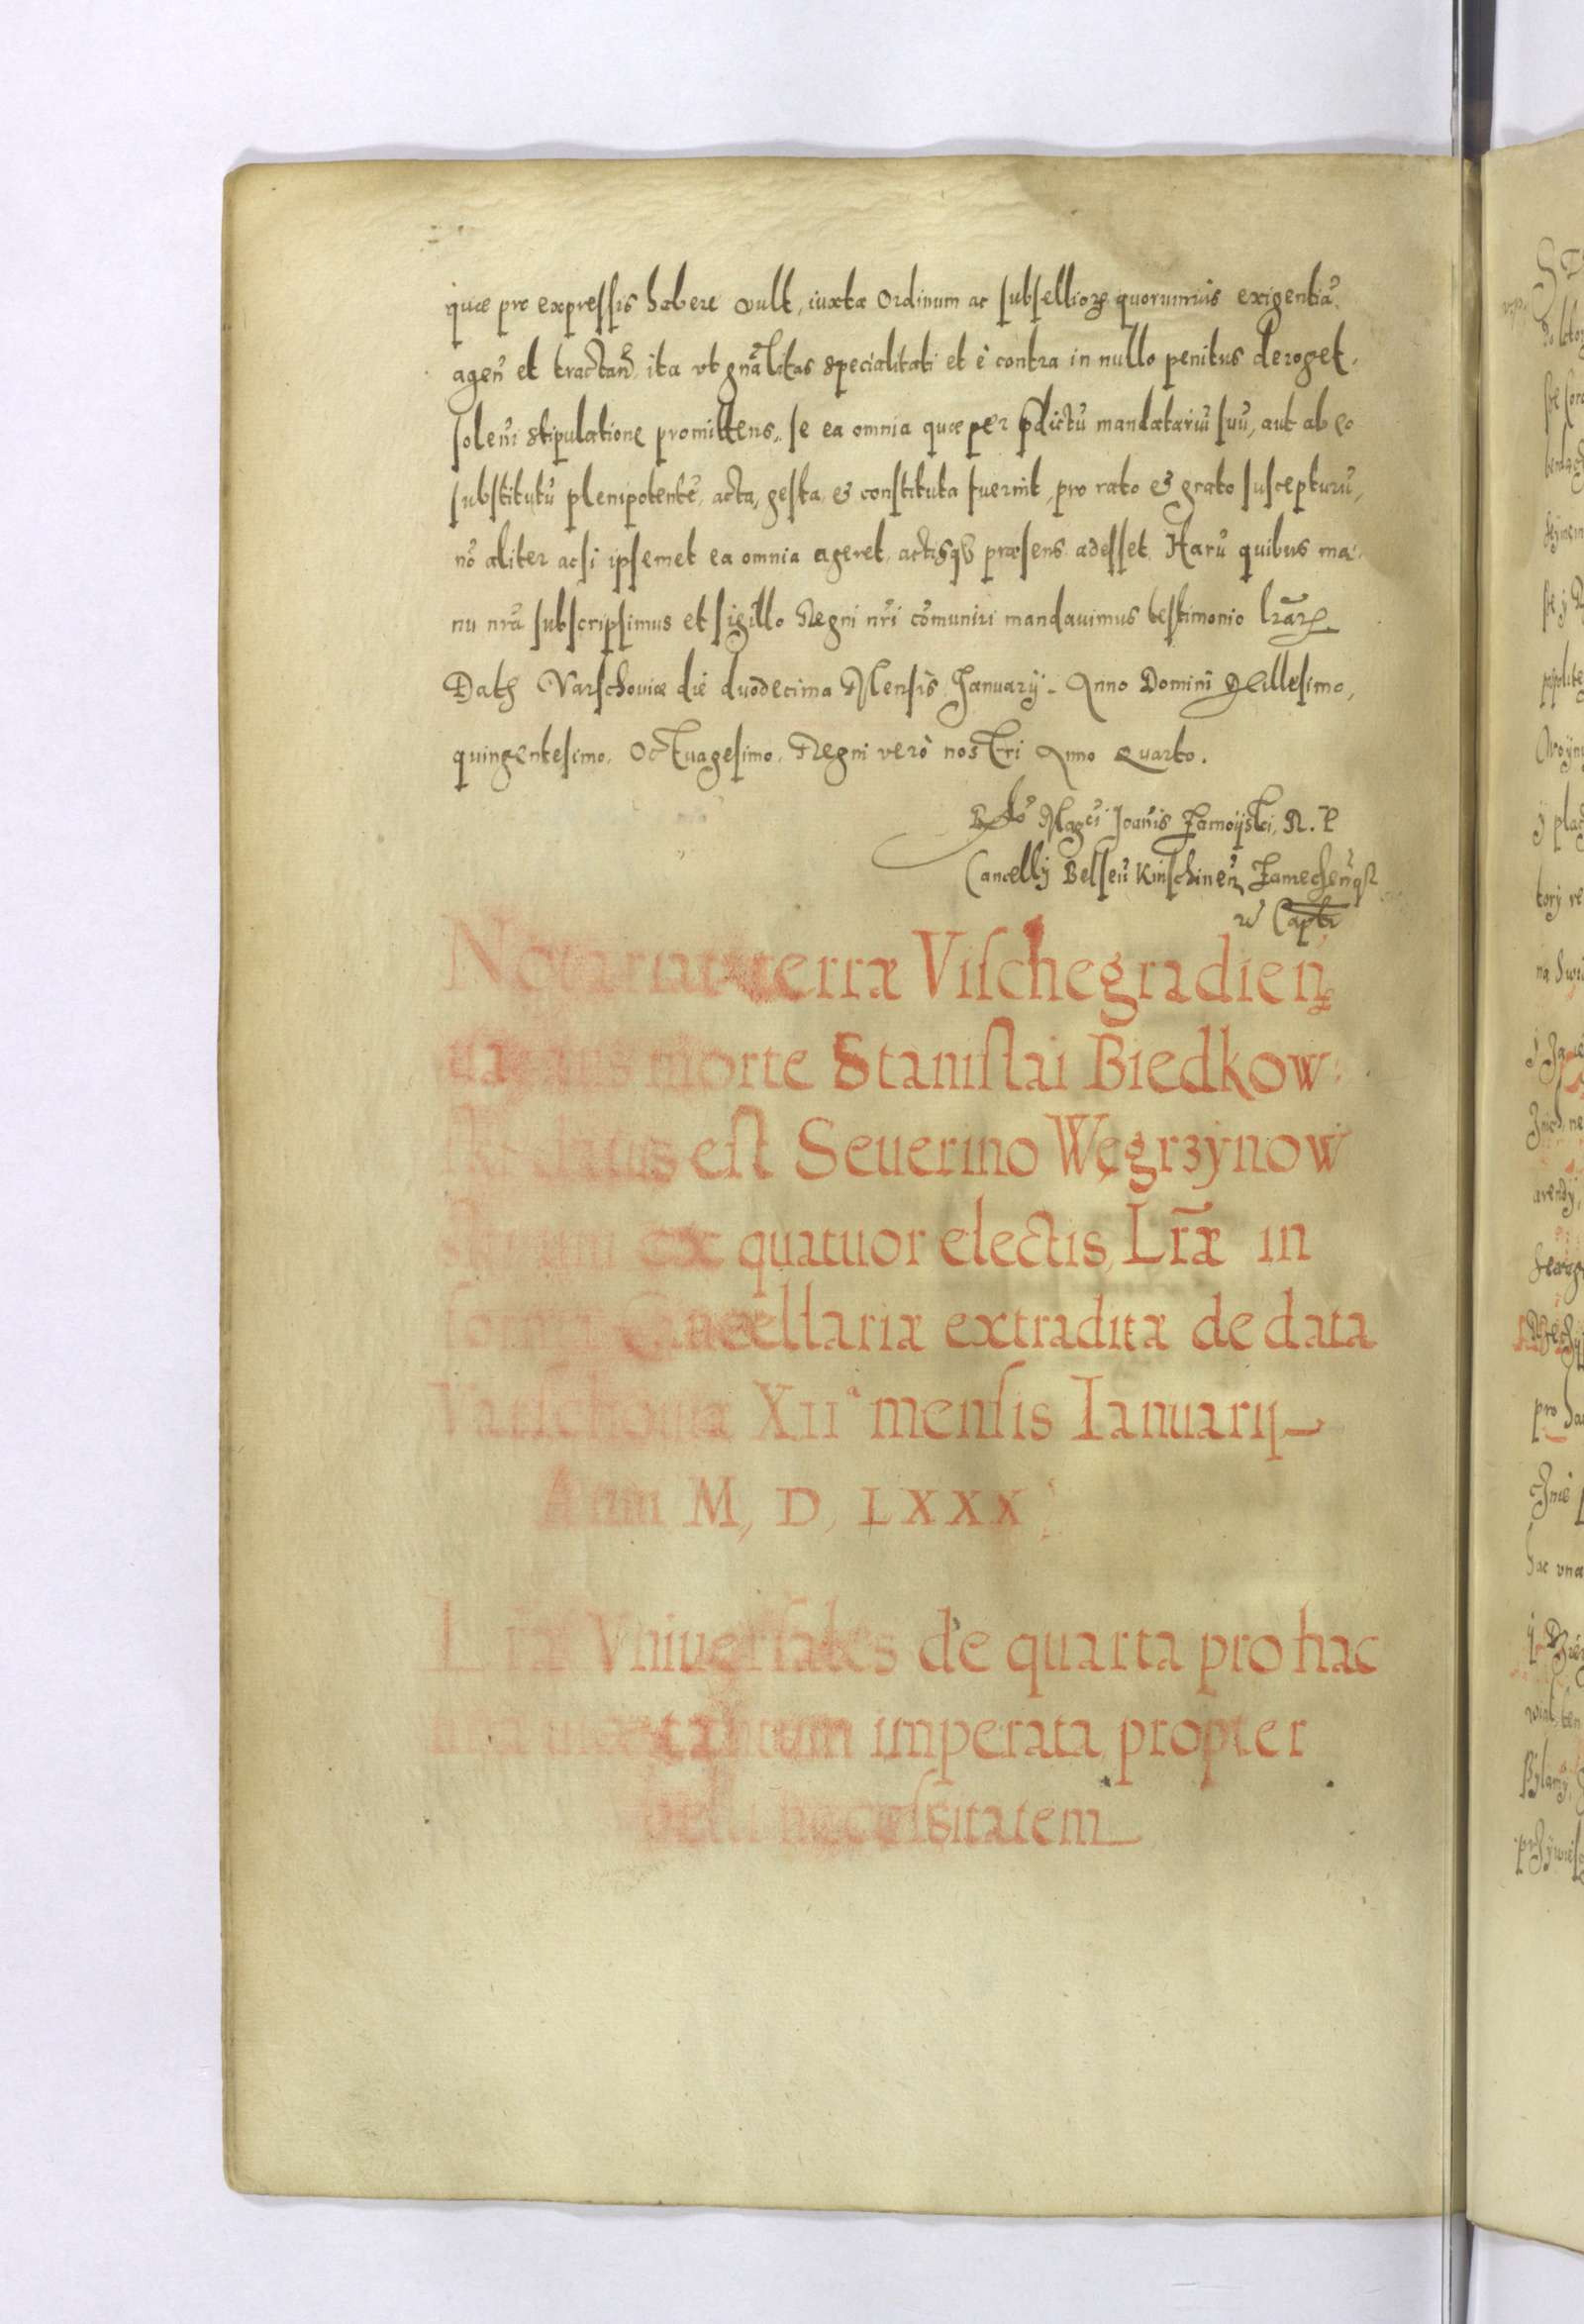 quæ pro expressis habere vult, iuxta Ordinum ac subsellioꝝ quorumuis exigentiã,
agen̄ et tractan̄, ita vt gñalitas specialitati et è contra in nullo penitus deroget.
soleñi stipulatione promittens, se ea omnia quæ per p̄dictũ mandatariũ suũ, aut ab eo
substitutũ plenipotentẽ, acta, gesta, & constituta fuerint, pro rato & grato suscepturũ,
nõ aliter acsi ipsemet ea omnia ageret, actisqꝫ præsens adesset. Harũ quibus ma-
nu nrã subscripsimus et sigillo Regni nr̃i cõmuniri mandauimus testimonio lrãrꝝ
Datꝫ Varschoviæ die duodecima Mensis January. Anno Domini Millesimo,
quingentesimo, Octuagesimo, Regni verò nostri Anno Quarto.
Rẽlo Magci Joañis Zamoyski, R. P
Cancellÿ Belseñ Knischineñ Zamecheñqꝫ
Capti
Notariat terræ Vischegradien̄
uacans morte Stanislai Biedkow
ski datus est Seuerino Węgrzynow
skj uni ex quatuor electis, Lræ in
forma Cancellariæ extraditæ de data
Varschouiæ XIIᵃ mensis Ianuarij
Anni M, D, LXXX
Lræ Vniuersales de quarta pro hac
una uice tantum imperata propter
belli necessitatem